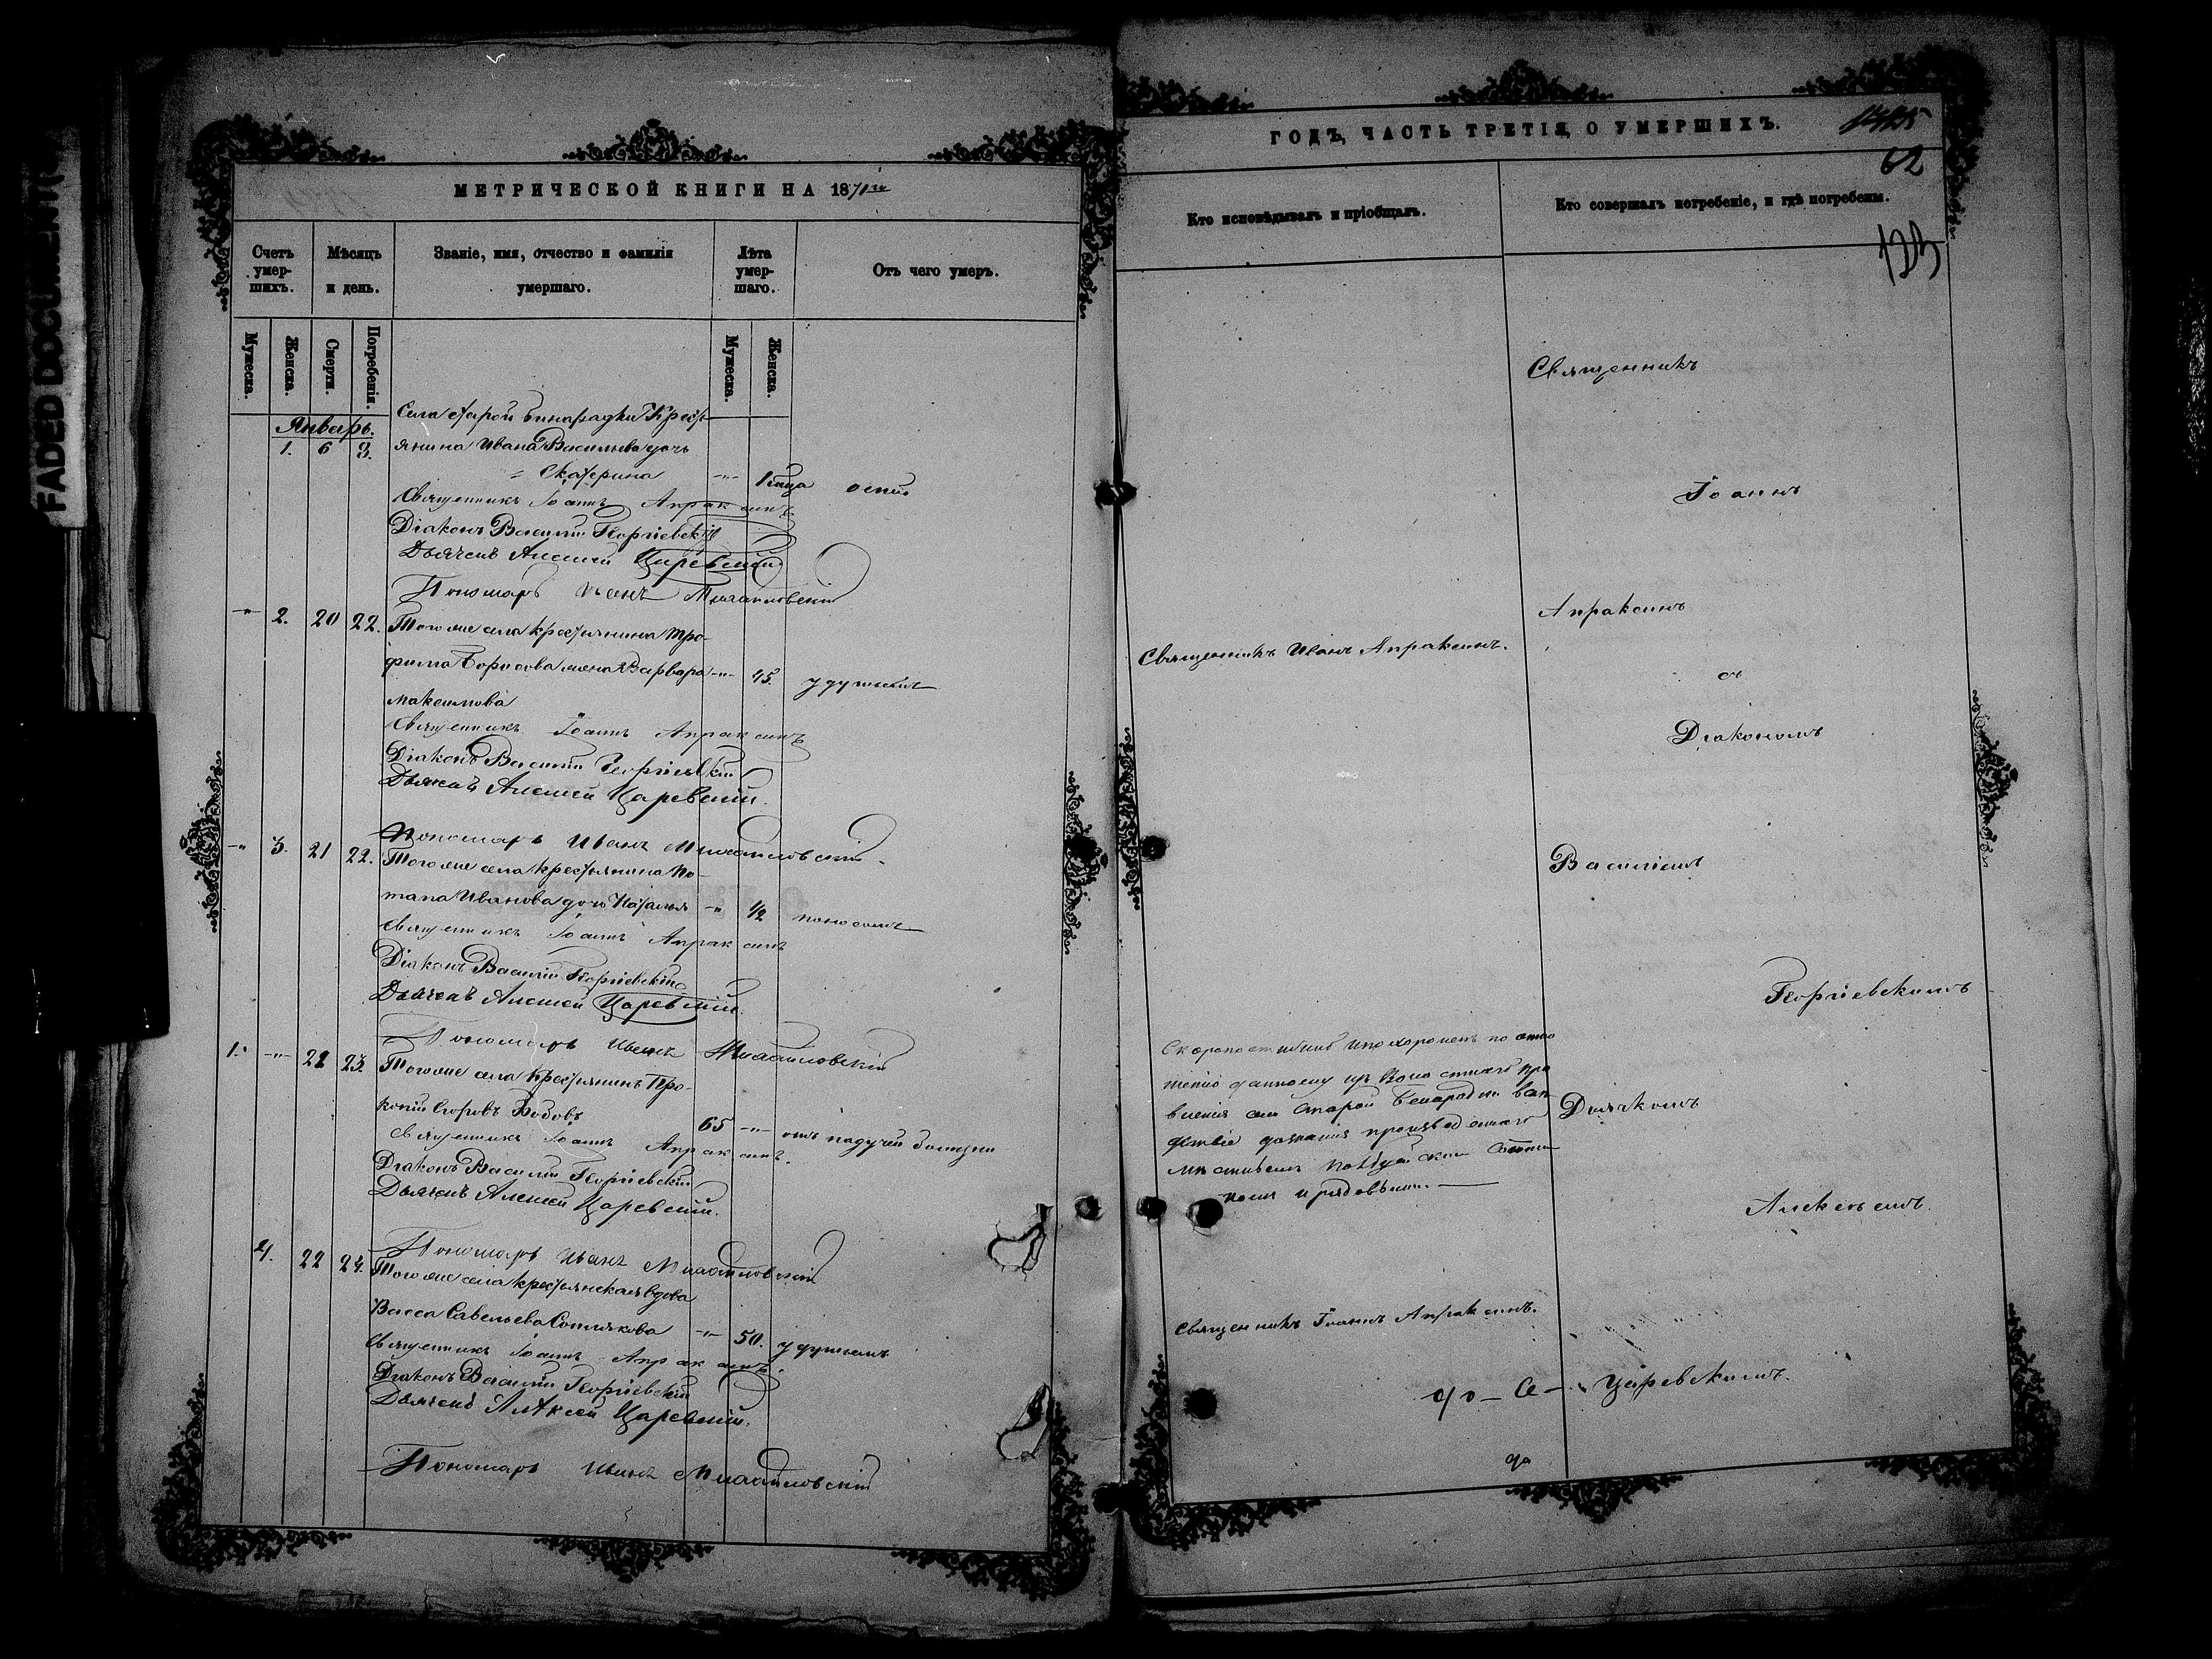 FADED DOCUMENT
МЕТРИЧЕСКОЙ КНИГИ НА 1871 го
Счетъ умер-шихъ.
Мѣсяцъ и день.
Званіе, имя, отчество и фамилія умершаго.
Лѣта умер-шаго.
Отъ чего умеръ.
Мужеска.
Женска.
Смерти.
Погребенія.
Мужеска.
Женска.
Села Старой Бинарадки Кресть
Январь.
1. 6 8. янина Ивана Васильева дочь
Екатерина -"- 1 года оспы
Священникъ Іоаннъ Апраксинъ
Діаконъ Василій Георгіевскій
Дьячекъ Алексей Царевскій
Пономарь Иванъ Михайловскій
-"- 2. 20 22. Того же села крестьянина Тро-
фима Борисова жена Варвара -"- 45. удушьемъ
Максимова
Священникъ Іоаннъ Апраксинъ
Діаконъ Василій Георгіевскій
Дьячекъ Алексей Царевскій.
Пономарь Иванъ Михайловскій
-"- 3. 21 22. Того же села крестьянина По-
тапа Иванова дочь Наталья -"- 1/2 поносомъ
Священникъ Іоаннъ Апраксинъ
Діаконъ Василій Георгіевскій
Дьячекъ Алексей Царевскій.
Пономарь Иванъ Михайловскій
1. -"- 22 23. Того же села Крестьянинъ Про-
копій Егоровъ
65 -"- отъ падучей болезни
Священникъ Іоаннъ Апраксинъ.
Діаконъ Василій Георгіевскій
Дьячекъ Алексей Царевскій.
Пономарь Иванъ Михайловскій
4. 22 24. Того же села крестьянская вдова
Васса Савельева -"- 50. удушьемъ
Священникъ Іоаннъ Апраксинъ.
Діаконъ Василій Георгіевскій
Дьячекъ Алексей Царевскій.
Пономарь Иванъ Михайловскій
ГОДЪ, ЧАСТЬ ТРЕТІЯ, О УМЕРШИХЪ.
62
123
Кто исповѣдывалъ и пріобщалъ.
Кто совершалъ погребеніе, и гдѣ погребены.
Священникъ
Іоаннъ
Апраксинъ
Священникъ Иванъ Апраксинъ.
съ
Діакономъ
Василіемъ
Георгіевскимъ
Скоропостижно и похороненъ по отно
шенію данному изъ Волостнаго пра
вленія села Старой Бинарадки
дознанія произведеннаго
Дьячкомъ
Алексеемъ
Священникъ Іоаннъ Апраксинъ.
Царевскимъ.